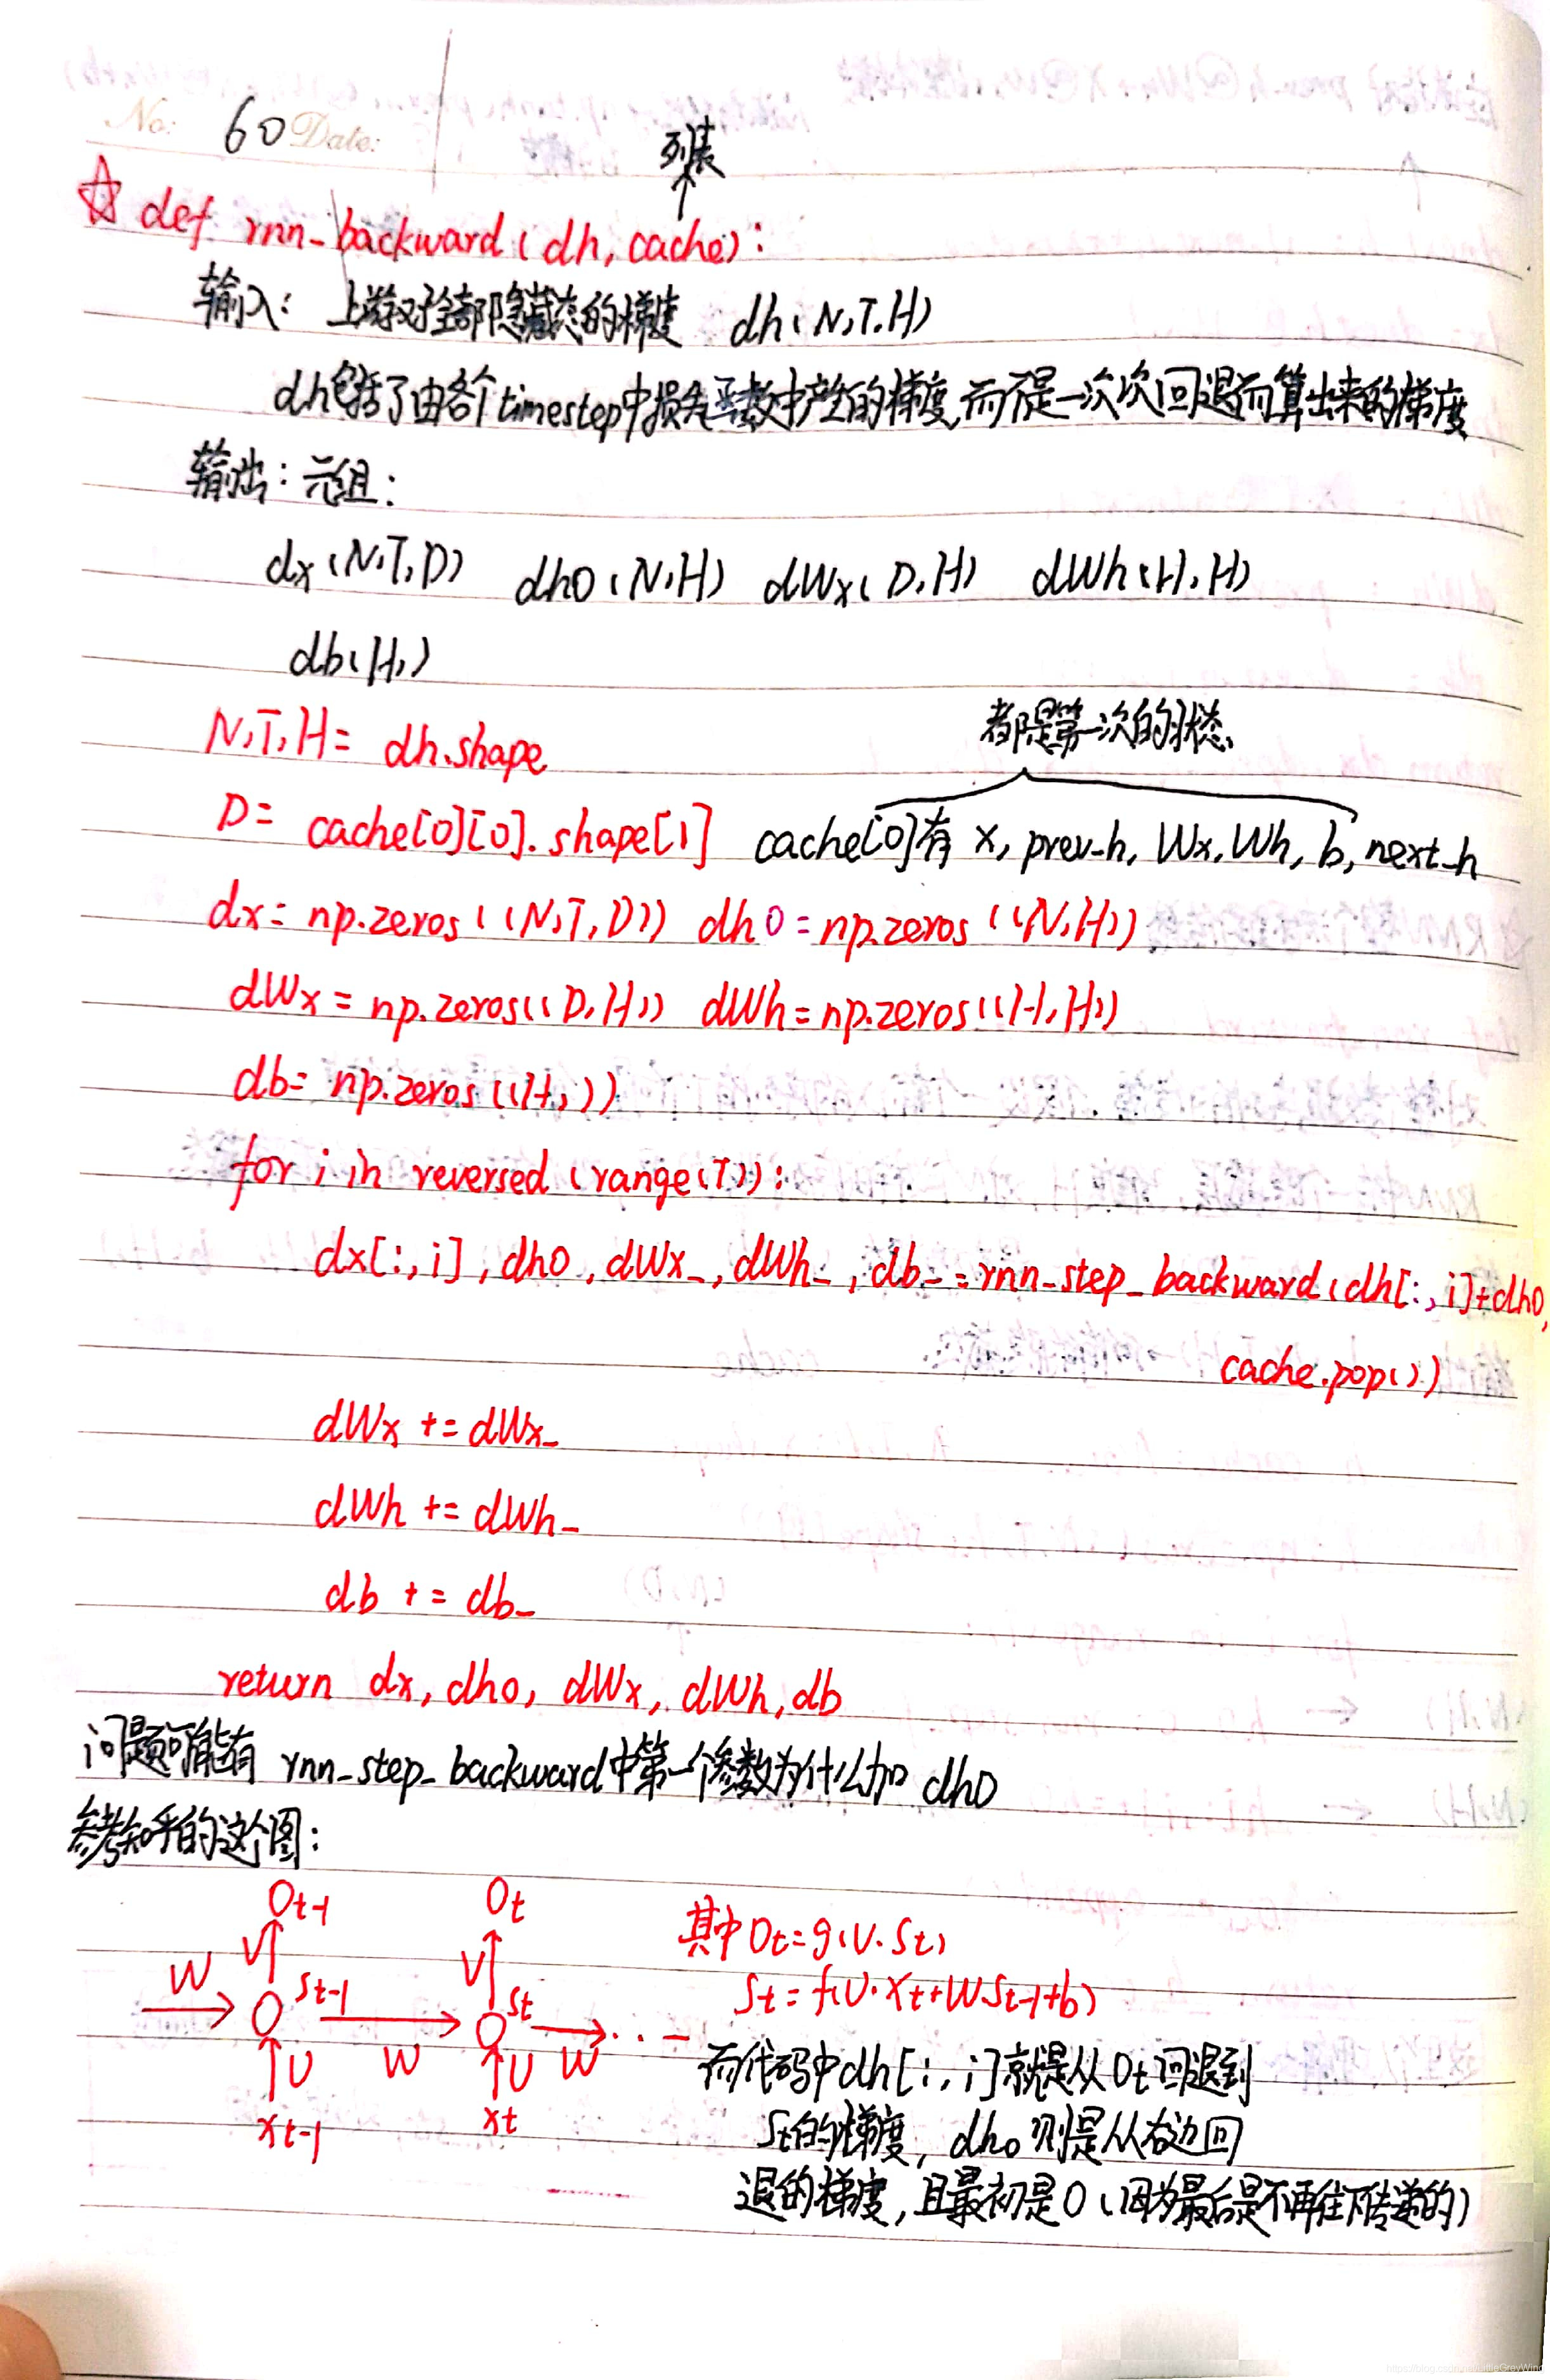 No: 60 Date:
列表
↑
☆ def rnn_backward(dh, cache):
输入: 上游对全部隐藏态的梯度 dh(N,T,H)
dh包括了由各个timestep中损失函数中产生的梯度,而不是一次次回退而算出来的梯度
输出: 元组:
dx(N,T,D) dh0(N,H) dWx(D,H) dWh(H,H)
db(H,)
N,T,H = dh.shape
都是第一次的状态
D = cache[0][0].shape[1] cache[0]有 x, prev_h, Wx, Wh, b, next_h
dx = np.zeros((N,T,D)) dh0 = np.zeros((N,H))
dWx = np.zeros((D,H)) dWh = np.zeros((H,H))
db = np.zeros((H,))
for i in reversed(range(T)):
dx[:,i], dh0, dWx_, dWh_, db_ = rnn_step_backward(dh[:,i]+dh0,
cache.pop())
dWx += dWx_
dWh += dWh_
db += db_
return dx, dh0, dWx, dWh, db
问题可能有 rnn_step_backward中第一个参数为什么加 dh0
参考知乎的这个图:
Ot-1 Ot
V V
W St-1 St
W W
U U
xt-1 xt
其中Ot=g(V·St)
St=f(U·Xt+W·St-1+b)
而代码中dh[:,i]就是从Ot回退到
St的梯度, dh0则是从右边回
退的梯度,且最初是0(因为最后是不再往下传递的)